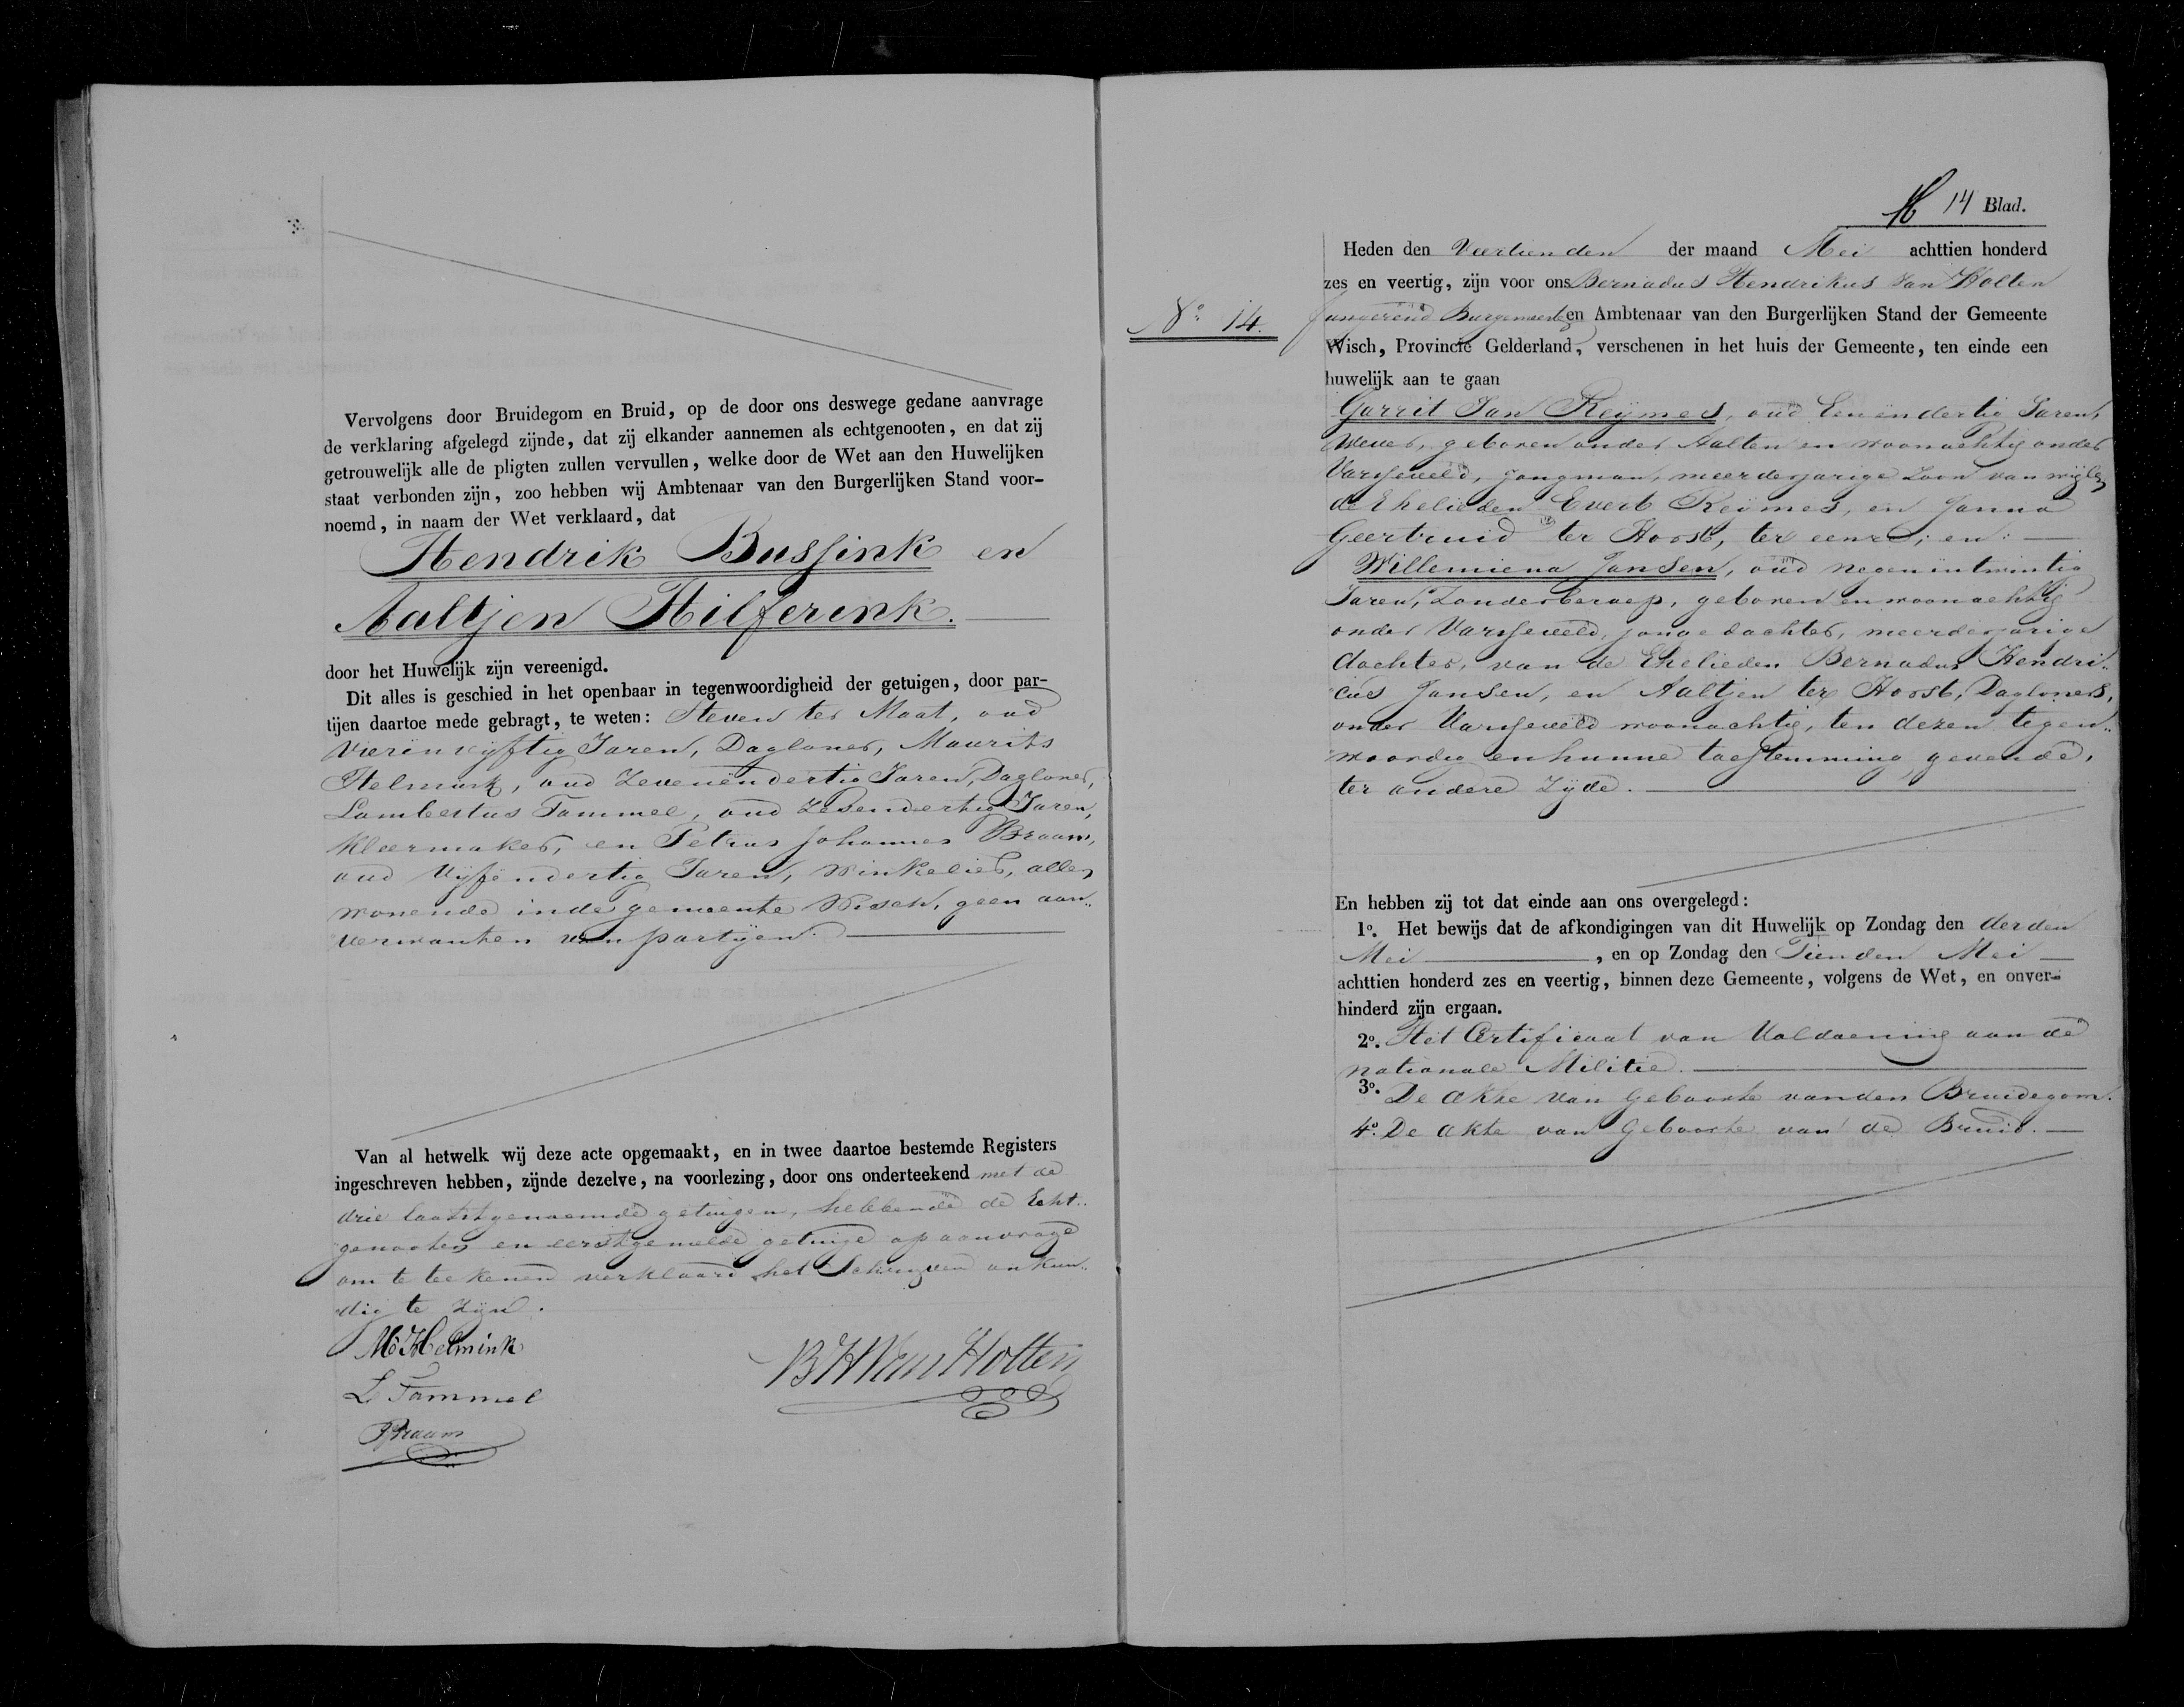 Vervolgens door Bruidegom en Bruid, op de door ons deswege gedane aanvrage
de verklaring afgelegd zijnde, dat zij elkander aannemen als echtgenooten, en dat zij
getrouwelijk alle de pligten zullen vervullen, welke door de Wet aan den Huwelijken
staat verbonden zijn, zoo hebben wij Ambtenaar van den Burgerlijken Stand voor-
noemd, in naam der Wet verklaard, dat
Hendrik Bussink en
Aaltjen Hilferink.
door het Huwelijk zijn vereenigd.
Dit alles is geschied in het openbaar in tegenwoordigheid der getuigen, door par-
tijen daartoe mede gebragt, te weten: Steven ter Maat, oud
Vierënvijftig Jaren, Dagloner, Maurits
Helmink, oud Zevenëndertig Jaren, Dagloner,
Lambertus Tammel, oud Zesendertig Jaren,
Kleermaker, en Petrus Johannes Braam,
oud Vijfëndertig Jaren, Winkelier, allen
wonende in de gemeente Wisch, geen aan„
verwanten van partijen.
Van al hetwelk wij deze acte opgemaakt, en in twee daartoe bestemde Registers
ingeschreven hebben, zijnde dezelve, na voorlezing, door ons onderteekend met de
drie laatstgenoemde getuigen, hebbende de Echt„
genooten en eerstgemelde getuige op aanvrage
om te teekenen verklaard het Schrijven onkun„
dig te zijn.
M Helmink
L Tammel
PJBraam
BHVan Holten
14 Blad.
Heden den Veertienden der maand Mei achttien honderd
zes en veertig, zijn voor ons Bernadus Hendrikus Van Holten
No. 14.
fungerend Burgemeester en Ambtenaar van den Burgerlijken Stand der Gemeente
Wisch, Provincie Gelderland, verschenen in het huis der Gemeente, ten einde een
huwelijk aan te gaan
Garrit Jan Reijmes, oud Eenëndertig Jaren,
Wever, geboren onder Aalten en woonachtig onder
Varsseveld, jongman, meerderjarige Zoon van wijlen
de Ehelieden Evert Reijmes, en Janna
Geertruid ter Horst, ter eenre; en:
Willemiena Jansen, oud negenëntwintig
Jaren, Zonder beroep, geboren en woonachtig
onder Varsseveld, jonge dochter, meerderjarige
dochter, van de Ehelieden Bernadus Hendri„
cus Jansen, en Aaltjen ter Horst, Dagloners,
onder Varsseveld woonachtig, ten dezen tegen„
woordig en hunne toestemming gevende,
ter andere Zijde.
En hebben zij tot dat einde aan ons overgelegd:
1o. Het bewijs dat de afkondigingen van dit Huwelijk op Zondag den derden
Mei, en op Zondag den Tienden Mei
achttien honderd zes en veertig, binnen deze Gemeente, volgens de Wet, en onver-
hinderd zijn ergaan.
2o. Het Certificaat van Voldoening aan de
nationale Militie.
3o. De akte van Geboorte van den Bruidegom.
4o. De akte van Geboorte van de Bruid.